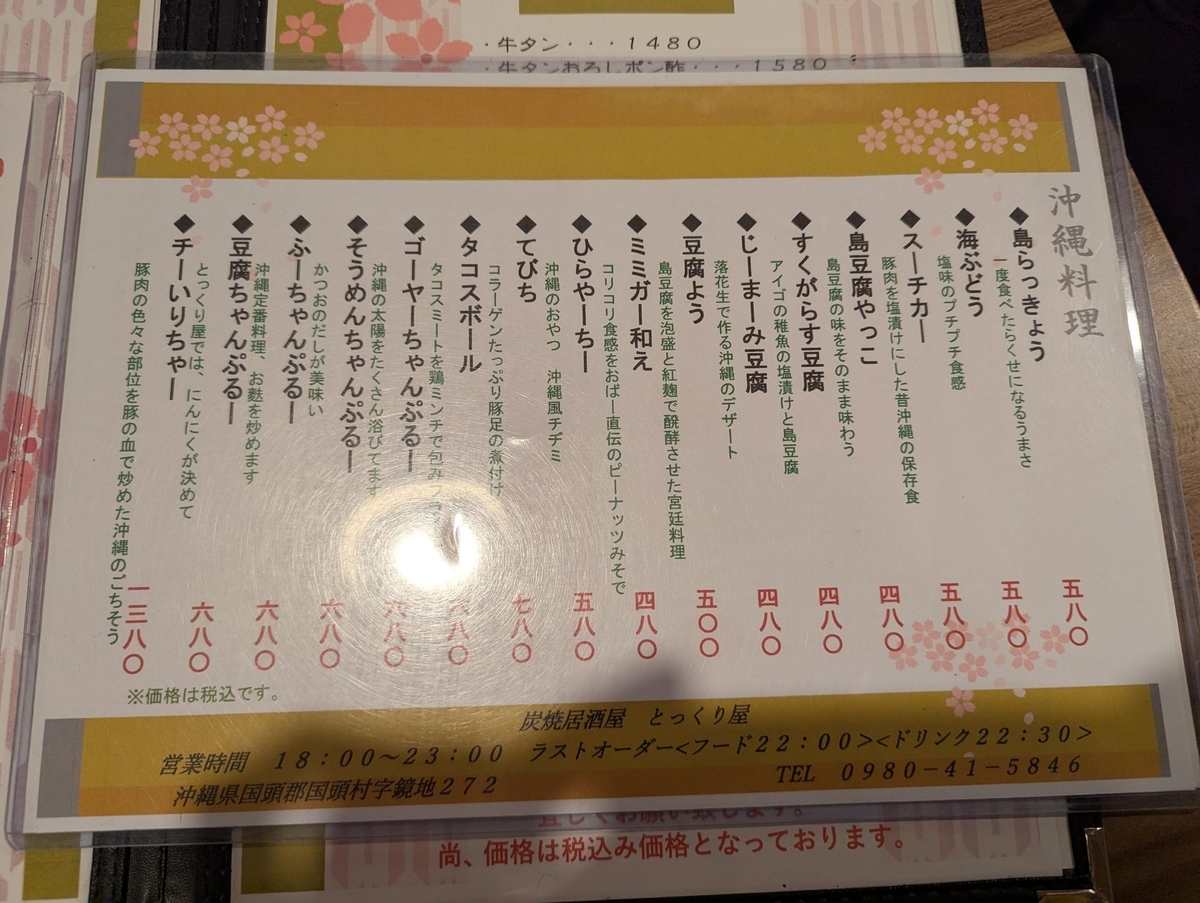 ・牛タン・・・１４８０
・牛タンおろしポン酢・・・１５８０
沖縄料理
◆島らっきょう
一度食べたらくせになるうまさ
五八〇
◆海ぶどう
塩味のプチプチ食感
五八〇
◆スーチカー
豚肉を塩漬けにした昔沖縄の保存食
五八〇
◆島豆腐やっこ
島豆腐の味をそのまま味わう
四八〇
◆すくがらす豆腐
アイゴの稚魚の塩漬けと島豆腐
四八〇
◆じーまーみ豆腐
落花生で作る沖縄のデザート
四八〇
◆豆腐よう
島豆腐を泡盛と紅麹で醗酵させた宮廷料理
五〇〇
◆ミミガー和え
コリコリ食感をおばー直伝のピーナッツみそで
四八〇
◆ひらやーちー
沖縄のおやつ　沖縄風チヂミ
五八〇
◆てびち
コラーゲンたっぷり豚足の煮付け
七八〇
◆タコスボール
タコスミートを鶏ミンチで包み
六八〇
◆ゴーヤーちゃんぷるー
沖縄の太陽をたくさん浴びてます
六八〇
◆そうめんちゃんぷるー
かつおのだしが美味い
六八〇
◆ふーちゃんぷるー
沖縄定番料理、お麩を炒めます
六八〇
◆豆腐ちゃんぷるー
とっくり屋では、にんにくが決めて
六八〇
◆チーいりちゃー
豚肉の色々な部位を豚の血で炒めた沖縄のごちそう
一三八〇
※価格は税込です。
炭焼居酒屋　とっくり屋
営業時間　１８：００～２３：００　ラストオーダー<フード２２：００><ドリンク２２：３０>
沖縄県国頭郡国頭村字鏡地２７２　TEL　０９８０－４１－５８４６
宜しくお願い致します。
尚、価格は税込み価格となっております。